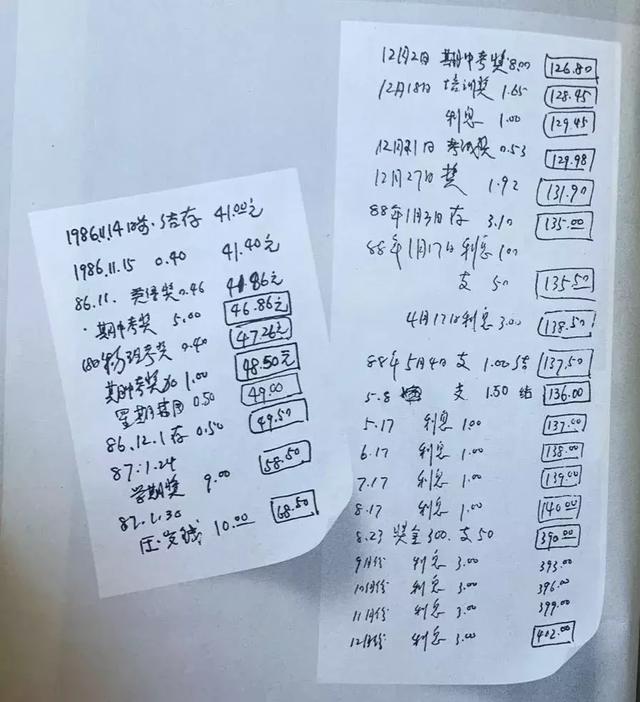 1986.11.14日前·结存 41.00元
1986.11.15 0.40 41.40元
86.11. 英语奖0.46 41.86元
·期中考奖 5.00 46.86元
物理考奖 0.40 47.26元
期中考奖加 1.00 48.50元
星期 0.50 49.00
86.12.1存 0.50 49.50
87.1.24
学期奖 9.00 58.50
87.1.30
压岁钱 10.00 68.50
12月2日 期中考奖 8.00 126.80
12月18日 培训奖 1.65 128.45
利息 1.00 129.45
12月21日 考试奖 0.53 129.98
12月27日 奖 1.92 131.90
88年1月3日存 3.10 135.00
88年1月17日利息 1.00
支 50 135.50
4月17日利息 3.00 138.50
88年5月4日支 1.00结 137.50
5.8 支 1.50 结 136.00
5.17 利息 1.00 137.00
6.17 利息 1.00 138.00
7.17 利息 1.00 139.00
8.17 利息 1.00 140.00
8.23 奖金300. 支50 390.00
9月份 利息 3.00 393.00
10月份 利息 3.00 396.00
11月份 利息 3.00 399.00
12月份 利息 3.00 402.00